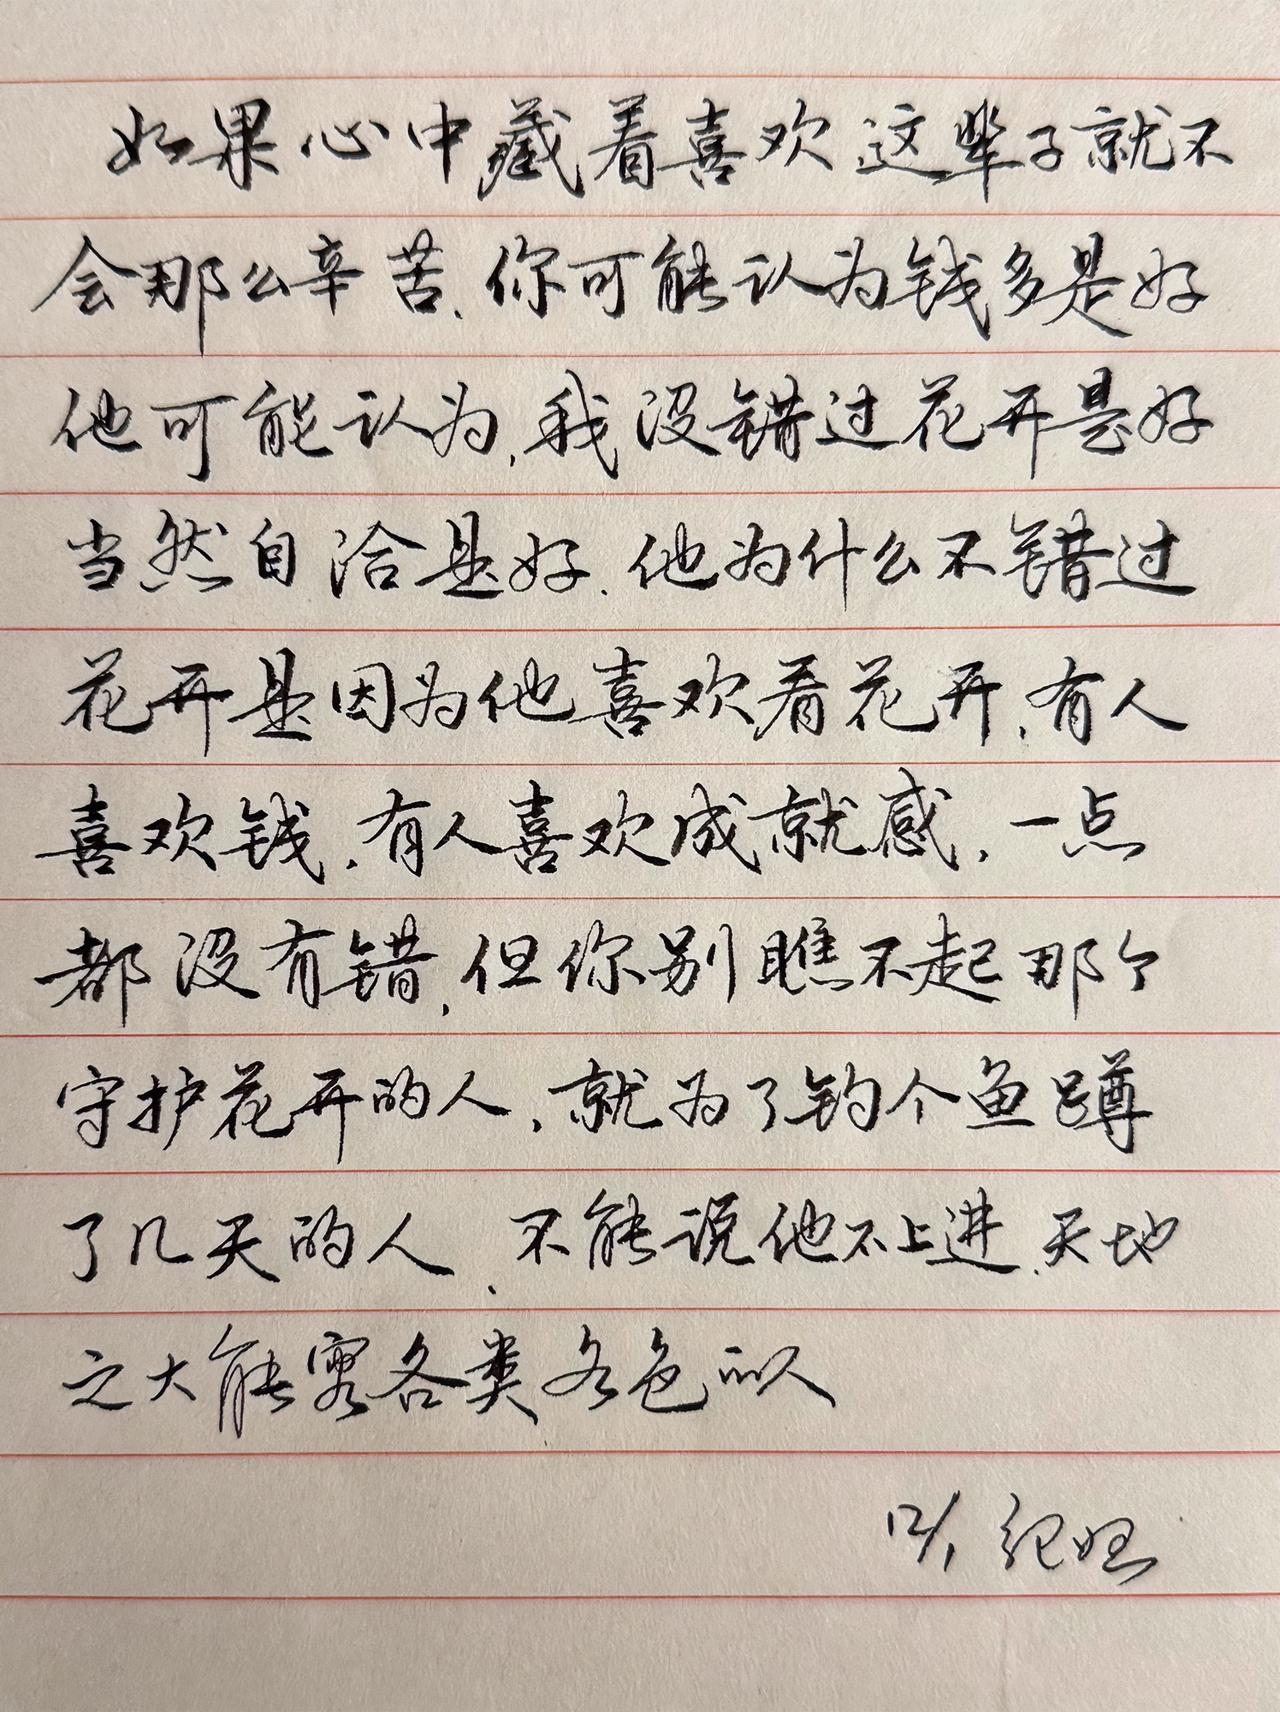 如果心中藏着喜欢这辈子就不
会那么辛苦、你可能认为钱多是好
他可能认为,我没错过花开是好
当然自洽是好.他为什么不错过
花开是因为他喜欢看花开,有人
喜欢钱,有人喜欢成就感,一点
都没有错,但你别瞧不起那个
守护花开的人,就为了钓个鱼蹲
了几天的人、不能说他不上进、天地
之大能容各类各色的人